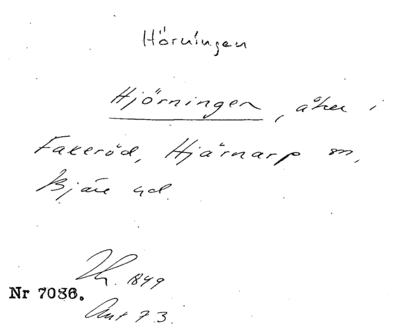 Hörningen
Hjörningen, åker i
Fakeröd, Hjärnarp sn,
Bjäre hd.
1849
Nr 7086.
Akt 73.